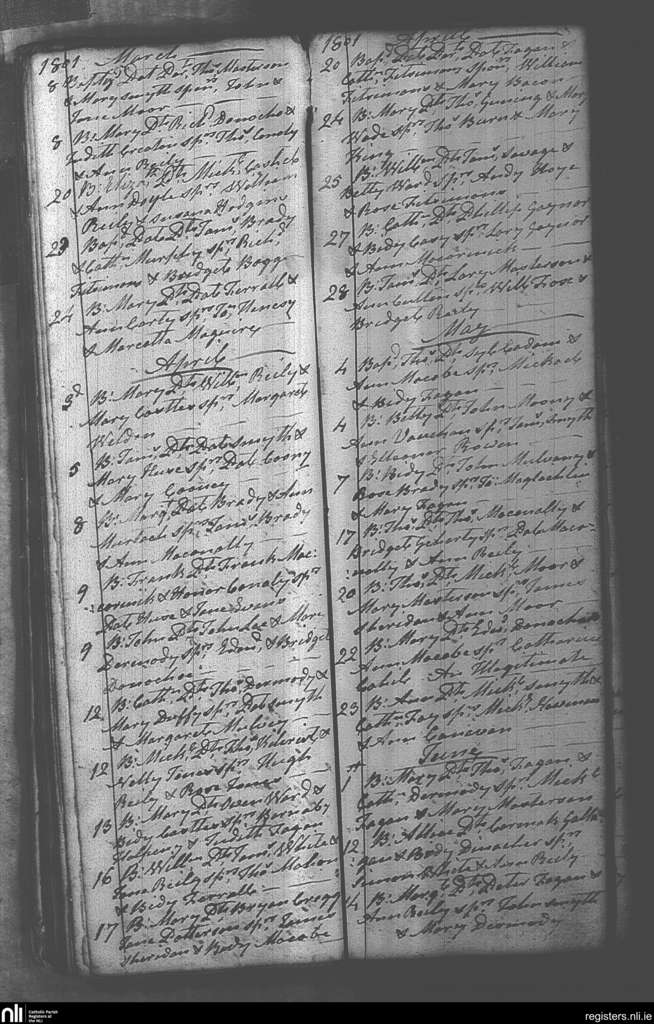 1801 March
8 Bapt. Pat Dr. Thos. Masterson
& Mary Smyth spr. John &
Jane Moor
8 B: Mary Dr. Rich. Donochoe &
Judith Crealen spr. Thos. Conoly
& Ann Reily
20 B: Eliza. Dr. Mich.
& Ann Doyle spr. William
Reily & Susana Hodgins
Bap. Pat Dr. Jams. Brady
& Cath. Murphy spr. Rich.
Fitsimons & Bridget Boggs
24 B: Mary Dr. Pat Ferrall &
Ann Corty spr. Jon. Henesy
& Marcella Maguiry
April
3d B: Mary Dr. Willm. Reily &
Mary Castles spr. Margaret
Weldon
5 B: Jams. Dr. Pat Smyth &
Mary Huse spr. Pat Coory
& Mary
8 B: Marg. Pat Brady & Ann
Murloch spr. Jams. Brady
& Ann Maconally
9 B: Frank Dr. Frank Mac-
:cormick & Honor Conaly spr.
Pat Huse & Jane Evans
9 B: John Dr. John Lee & Mary
Dermody spr. Edmd. & Bridget
Donochoe
12 B: Cath. Dr. Thos. Dermody &
Mary Duffy spr. Pat Smyth
& Margaret Mulvey
12 B: Mich. Dr. Thos. Kilcrest &
Nelly Jones spr. Hugh
Reily & Rose Jones
13 B: Mary Dr. Owen Ward &
Bidy Castles spr. Barnaby
Halpeny & Judith Fagan
16 B: Willm. Dr. Jams. White &
Jane Reily spr. Thos. Malon
& Bidy Ferrall
17 B: Mary Dr. Bryan Cregg
Jane Patterson spr. James
Sheridan & Body Macabe
1801 April
20 Bap. Pat Dr. Pat Fagan &
Cath. Fitsimons spr. William
Fitsimons & Mary Bacon
24 B: Mary Dr. Thos. Guning & Mary
Wade spr. Thos. Burn & Mary
King
25 B: Willm. Dr. Jams. Savage &
Betty Ward spr. Andy Hoye
& Rose Fitsimons
27 B: Cath. Dr. Phillip Gaynor
& Bidy Casy spr. Lory Gaynor
& Ann Macormick
28 B: Jams. Dr. Lory Masterson &
Ann Cullen spr. Will. &
Bridget Reily
May
4 Bap. Thos. Dr. Syl. Cadam &
Ann Macabe spr. Michael
& Bidy Fagan
4 B: Betty Dr. John Moony &
Ann Vaughan spr. Jams. Smyth
& Ellenor Rowen
7 B: Bidy Dr. John Mulvany &
Rose Brady spr. Jo: Maglochlin
& Mary Fagan
17 B: Thos. Dr. Thos. Maconally &
Bridget Geherty spr. Pat Maco-
:nally & Ann Reily
20 B: Thos. Dr. Mich. Moor &
Mary Masterson spr. James
Sheridan & Ann Moor
22 B: Mary Dr. Edmd. Donochoe &
Ann Macabe spr. Catharine
Cahil. An Illegitimate
23 B: Ann Dr. Mich. Smyth &
Cath. Fay spr. Mich. Heveran
& Ann Canevan
June
1st B: Mary Dr. Thos. Fagan &
Cath. Dermody spr. Mich.
Fagan & Mary Masterson
12 B: Allice Dr. Cormak Galh-
:gan & Body Donacher spr.
Simon White & Ann Reily
14 B: Marg. Dr. Peter Fagan &
Ann Reily spr. John Smyth
& Mary Dermody
nli Catholic Parish
Registers at
the NLI
registers.nli.ie